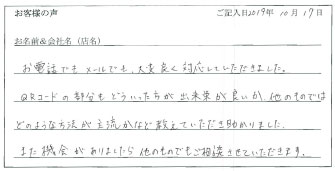 お客様の声 ご記入日2019年 10月 17日
お名前&会社名(店名)
お電話でもメールでも、大変良く対応していただきました。
QRコードの部分もどういったらが出来栄が良いか、他のものでは
どのような方法が主流かなど教えていただき助かりました。
また機会がありましたら他のものでもご相談させていただきます。